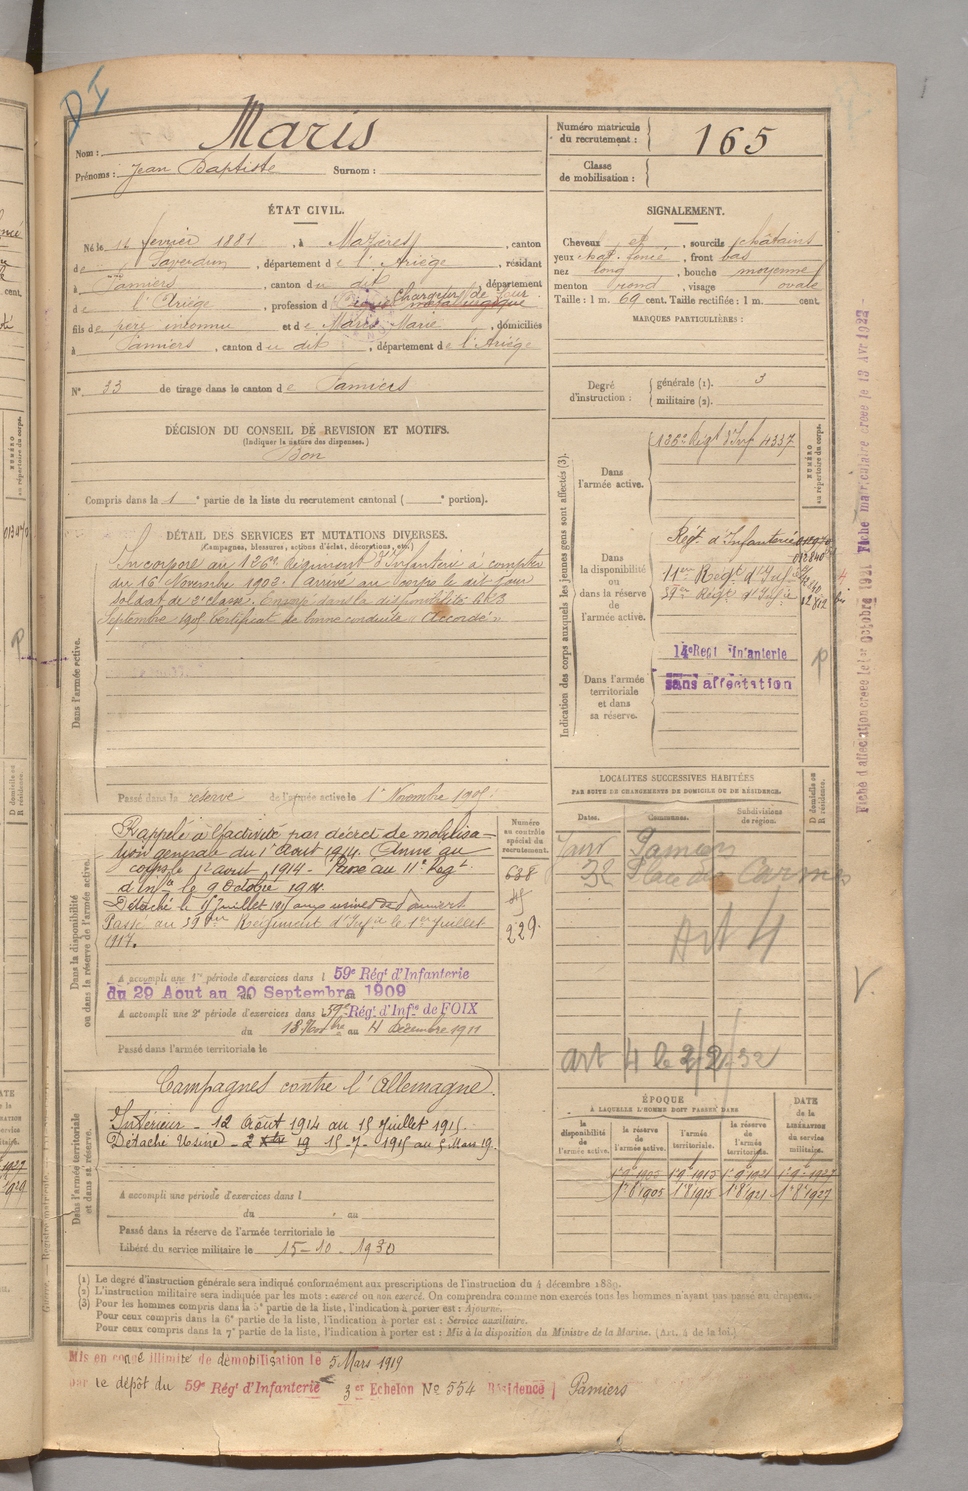 DI
Nom : Maris
Prénoms : Jean Baptiste Surnom :
Numéro matricule du recrutement : 165
Classe de mobilisation :
ÉTAT CIVIL.
Né le 16 fevrier 1881, à Mazères, canton
de Saverdun, département de l'Ariège, résidant
à Pamiers, canton du dit, département
de l'Ariège, profession de Chargeur de four
métallurgique
fils de père inconnu et de Maris Marie, domiciliés
à Pamiers, canton du dit, département de l'Ariège
N° 33 de tirage dans le canton de Pamiers
SIGNALEMENT.
Cheveux et, sourcils châtains
yeux chat. foncé, front bas
nez long, bouche moyenne
menton rond, visage ovale
Taille : 1 m. 69 cent. Taille rectifiée : 1 m. cent.
MARQUES PARTICULIÈRES :
Degré d'instruction : générale (1). 3
militaire (2).
DÉCISION DU CONSEIL DE REVISION ET MOTIFS.
(Indiquer la nature des dispenses.)
Bon
Compris dans la 1e partie de la liste du recrutement cantonal ( e portion).
DÉTAIL DES SERVICES ET MUTATIONS DIVERSES.
(Campagnes, blessures, actions d'éclat, décorations, etc.)
Dans l'armée active.
Incorporé au 126e Régiment d'Infanterie à compter
du 16 Novembre 1902. Arrivé au corps le dit jour
soldat de 2e classe. Envoyé dans la disponibilité le 18
Septembre 1905 Certificat de bonne conduite « Accordé ».
Passé dans la réserve de l'armée active le 1er Novembre 1905.
Indication des corps auxquels les jeunes gens sont affectés (3).
NUMÉRO au répertoire du corps.
Dans l'armée active.
126e Régt d'Inf 4337
Dans la disponibilité ou dans la réserve de l'armée active.
Régt d'Infanterie
59e Régt d'Infie
Dans l'armée territoriale et dans sa réserve.
14e Regt d'Infanterie
sans affectation
P
LOCALITÉS SUCCESSIVES HABITÉES
PAR SUITE DE CHANGEMENTS DE DOMICILE OU DE RÉSIDENCE.
D domicile ou R résidence.
Dates. Communes. Subdivisions de région.
Pamiers
32 Place des Carmes
Art 4
art 4 le 2/2/32
V.
Dans la disponibilité ou dans la réserve de l'armée active.
Numéro au contrôle spécial du recrutement.
Rappelé à l'activité par décret de mobilisa-
tion générale du 1er Aout 1914. Arrivé au
corps le 12 aout 1914 - Passé au 11e Regt
d'Infie le 9 Octobre 1914.
Détaché le 15 Juillet 1915 aux usines
Passé au 59eme Régiment d'Infie le 1er Juillet
1917.
229.
A accompli une 1re période d'exercices dans l 59e Régt d'Infanterie
du 29 Aout au 20 Septembre 1909
A accompli une 2e période d'exercices dans l 59e Régt d'Infie de FOIX
du 18 Novbre au 4 décembre 1911
Passé dans l'armée territoriale le
Dans l'armée territoriale et dans sa réserve.
Campagnes contre l'Allemagne.
Intérieur - 12 Août 1914 au 15 Juillet 1915.
Détaché Usine - 15-7-1915 au 5 Mars 19.
A accompli une période d'exercices dans l
du au
Passé dans la réserve de l'armée territoriale le
Libéré du service militaire le 15-10-1930
ÉPOQUE
À LAQUELLE L'HOMME DOIT PASSER DANS
la disponibilité de l'armée active. la réserve de l'armée active. l'armée territoriale. la réserve de l'armée territoriale. DATE de la LIBÉRATION du service militaire.
1er 9e 1905 1er 9e 1915 1er 9e 1921 1er 9e 1927
1er 8e 1905 1er 8e 1915 1er 8e 1921 1er 8e 1927
(1) Le degré d'instruction générale sera indiqué conformément aux prescriptions de l'instruction du 4 décembre 1889.
(2) L'instruction militaire sera indiquée par les mots : exercé ou non exercé. On comprendra comme non exercés tous les hommes n'ayant pas passé au drapeau.
(3) Pour les hommes compris dans la 5e partie de la liste, l'indication à porter est : Ajourné.
Pour ceux compris dans la 6e partie de la liste, l'indication à porter est : Service auxiliaire.
Pour ceux compris dans la 7e partie de la liste, l'indication à porter est : Mis à la disposition du Ministre de la Marine. (Art. 4 de la loi.)
Mis en congé illimité de démobilisation le 5 Mars 1919
par le dépôt du 59e Régt d'Infanterie 3er Echelon No 554 Résidence Pamiers
Fiche d'affectation créée le 1er octobre 1921 Fiche matriculaire créée le 13 Avr 1922